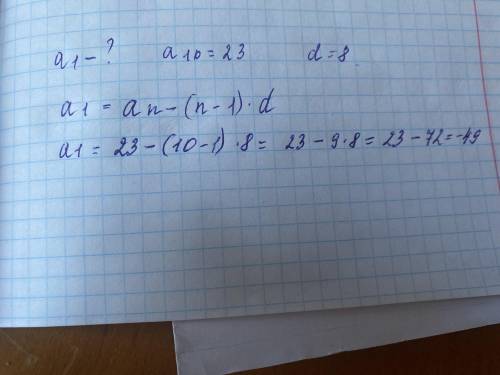 a1 - ? a10 = 23 d = 8
a1 = an - (n - 1) · d
a1 = 23 - (10 - 1) · 8 = 23 - 9 · 8 = 23 - 72 = -49